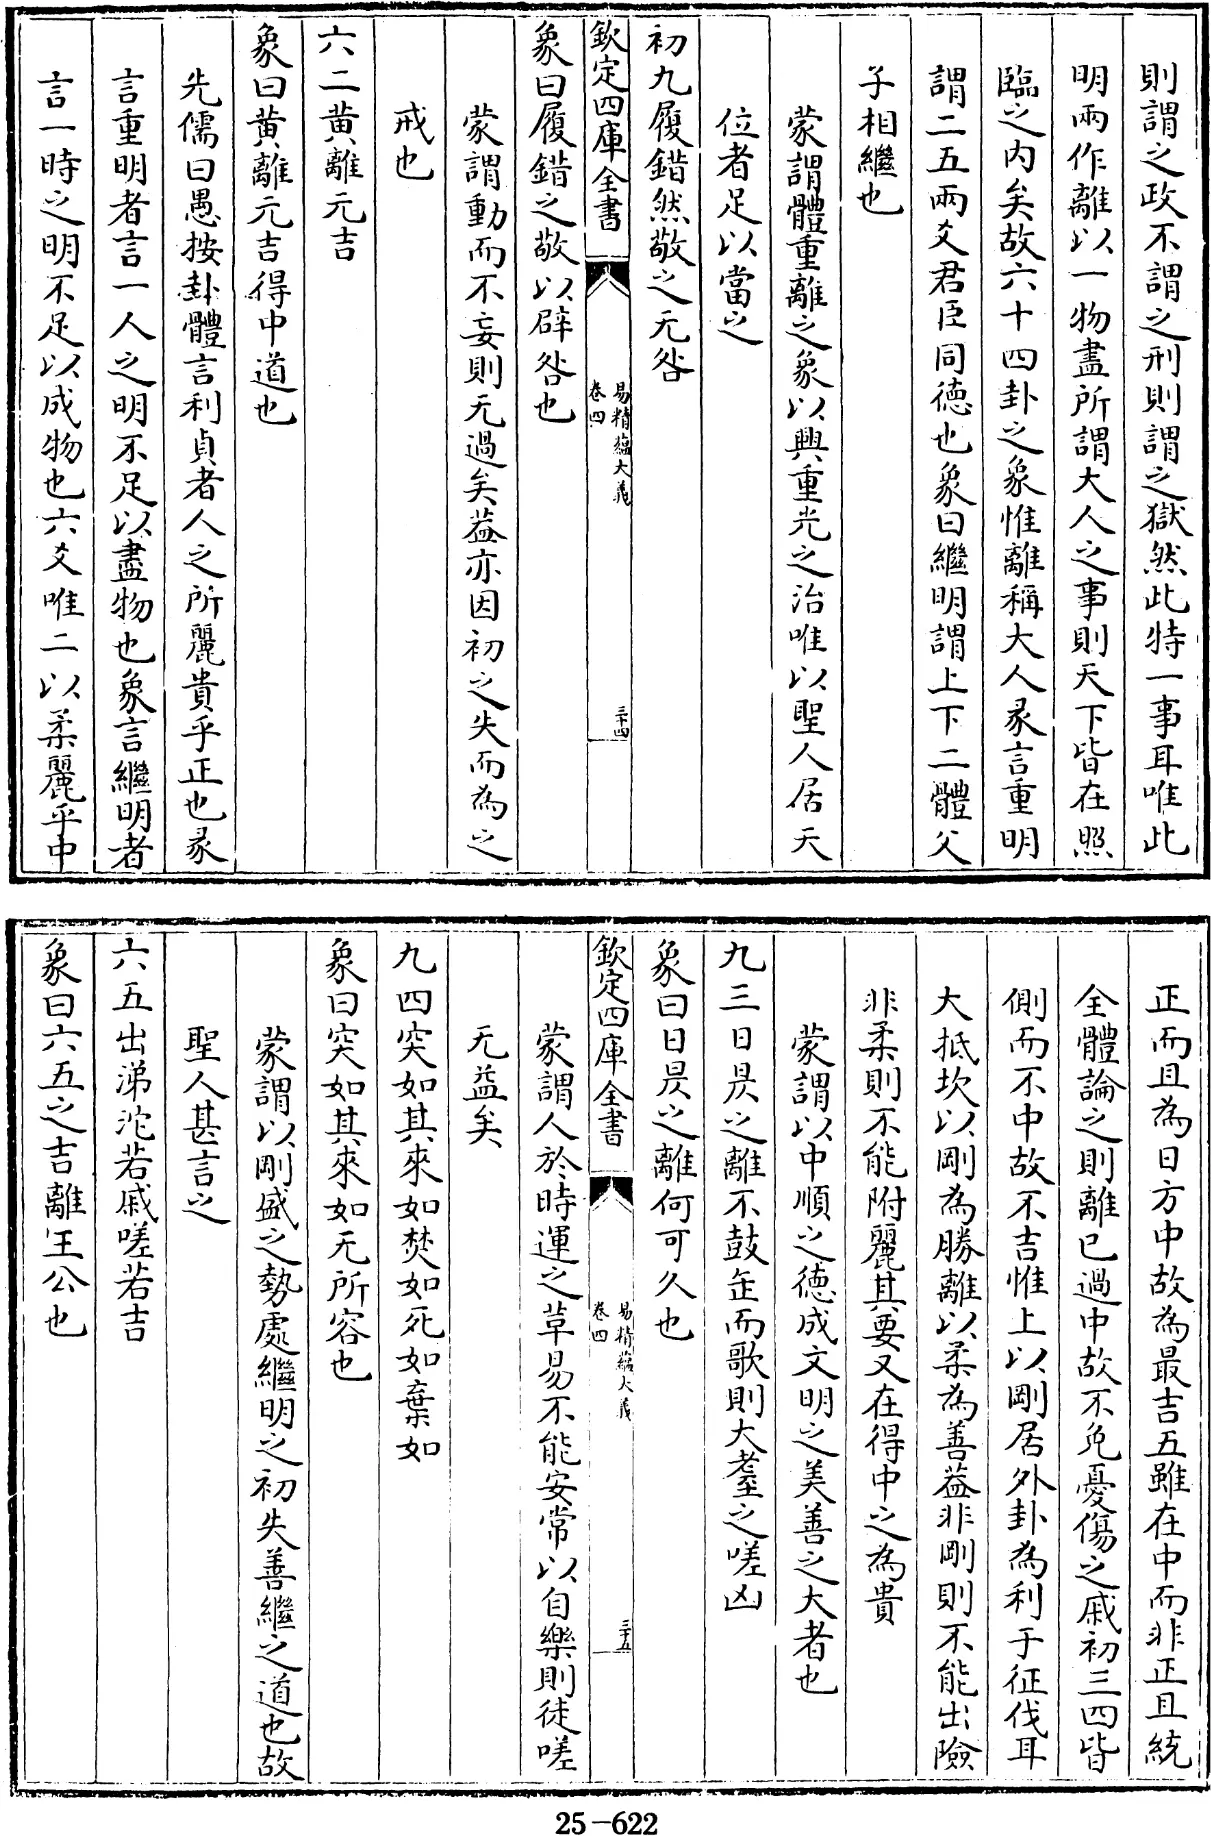 則謂之政不謂之刑則謂之獄然此特一事耳唯此
明兩作離以一物盡所謂大人之事則天下皆在照
臨之内矣故六十四卦之象惟離稱大人彖言重明
謂二五兩爻君臣同徳也象曰繼明謂上下二體父
子相繼也
蒙謂體重離之象以興重光之治唯以聖人居天
位者足以當之
初九履錯然敬之无咎
欽定四庫全書
易精蘊大義
卷四
三十四
象曰履錯之敬以辟咎也
蒙謂動而不妄則无過矣葢亦因初之失而為之
戒也
六二黄離元吉
象曰黄離元吉得中道也
先儒曰愚按卦體言利貞者人之所麗貴乎正也彖
言重明者言一人之明不足以盡物也象言繼明者
言一時之明不足以成物也六爻唯二以柔麗乎中
正而且為日方中故為最吉五雖在中而非正且統
全體論之則離已過中故不免憂傷之戚初三四皆
側而不中故不吉惟上以剛居外卦為利于征伐耳
大抵坎以剛為勝離以柔為善葢非剛則不能出險
非柔則不能附麗其要又在得中之為貴
蒙謂以中順之徳成文明之美善之大者也
九三日昃之離不鼓缶而歌則大耋之嗟凶
象曰日昃之離何可久也
欽定四庫全書
易精蘊大義
卷四
三十五
蒙謂人於時運之草易不能安常以自樂則徒嗟
无益矣
九四突如其來如焚如死如棄如
象曰突如其來如无所容也
蒙謂以剛盛之勢處繼明之初失善繼之道也故
聖人甚言之
六五出涕沱若戚嗟若吉
象曰六五之吉離王公也
25-622